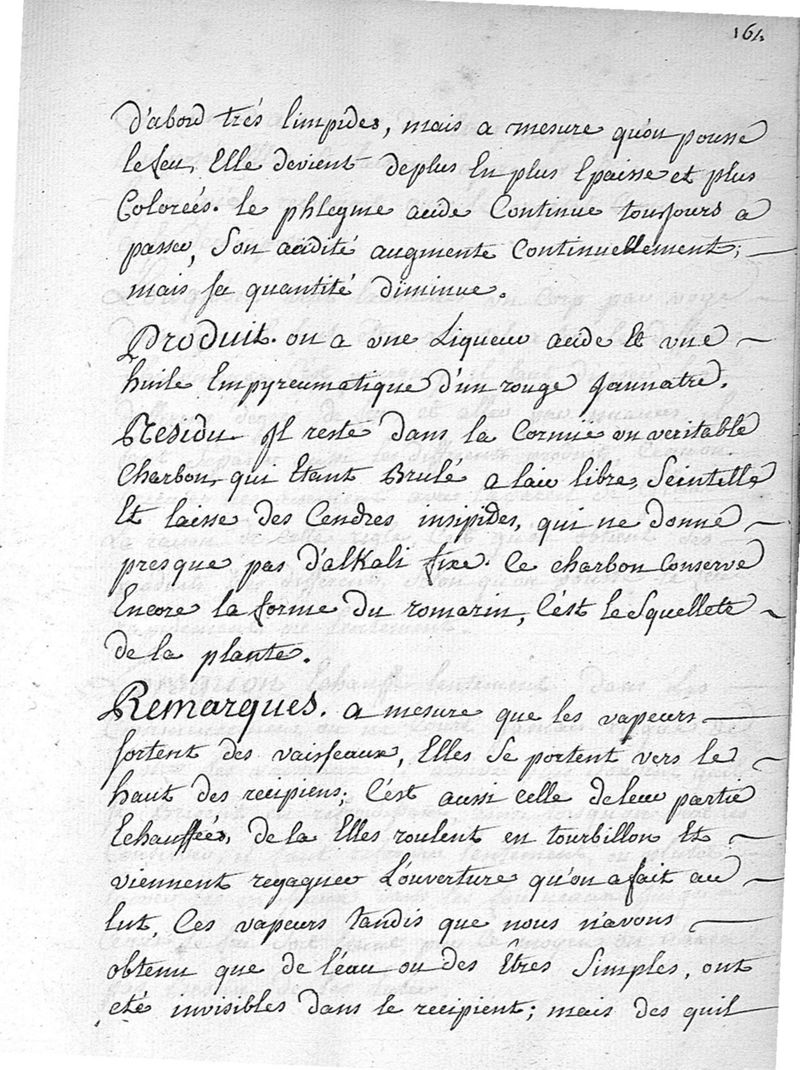 164
d'abord trés limpides, mais a mesure qu'on pousse
le feu, Elle devient deplus En plus Epaisse et plus
Coloreés. le phlegme acide Continue toujours a
passer, Son acidité augmente Continuellement;
mais sa quantité diminue.
Produit. on a une Liqueur acide Et une
huile Empyreumatique d'un rouge jaunatre.
Residu. Il reste dans la Cornue un veritable
Charbon, qui Etant Brulé a lair libre, Seintelle
Et laisse des Cendres insipides, qui ne donne
presque pas d'alkali fixe. Ce charbon Conserve
Encore la forme du romarin, C'ést le Squellete
de la plante.
Remarques. a mesure que les vapeurs
sortent des vaisseaux, Elles Se portent vers le
haut des recipiens; C'ést aussi celle deleur partie
Echauffées, de la Elles roulent en tourbillon Et
viennent regagner L'ouverture qu'on a fait au
lut, Ces vapeurs Tandis que nous n'avons
obtenu que de l'éau ou des Êtres Simples, ont
eté invisibles dans le recipient; mais des quil